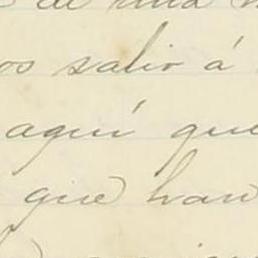 de una
os salio á
aquí que
que han